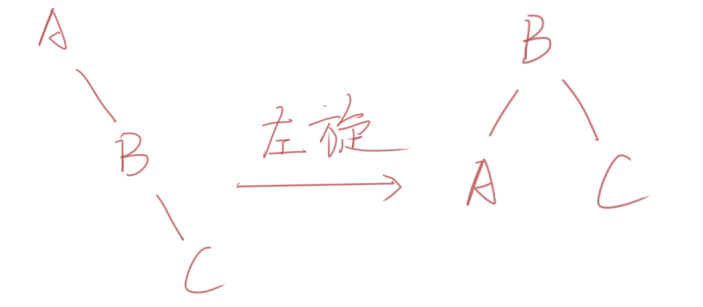 A
B
C
左旋
B
A
C